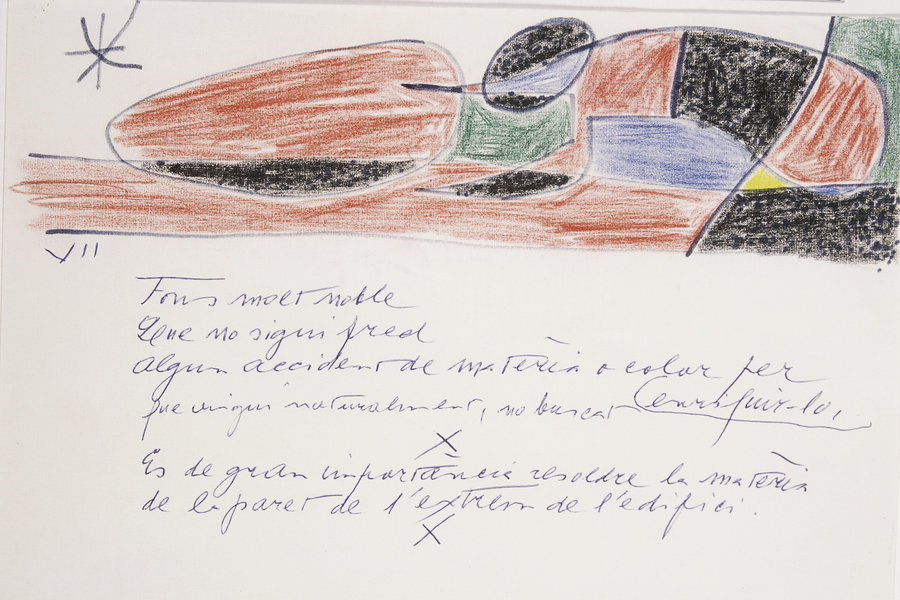 VII
Fons molt noble
Que no sigui fred
algun accident de matèria o color per
que vingui naturalment, no buscat Conseguir-lo,
X
Es de gran importància resoldre la matèria
de la paret de l'extrem de l'edifici.
X